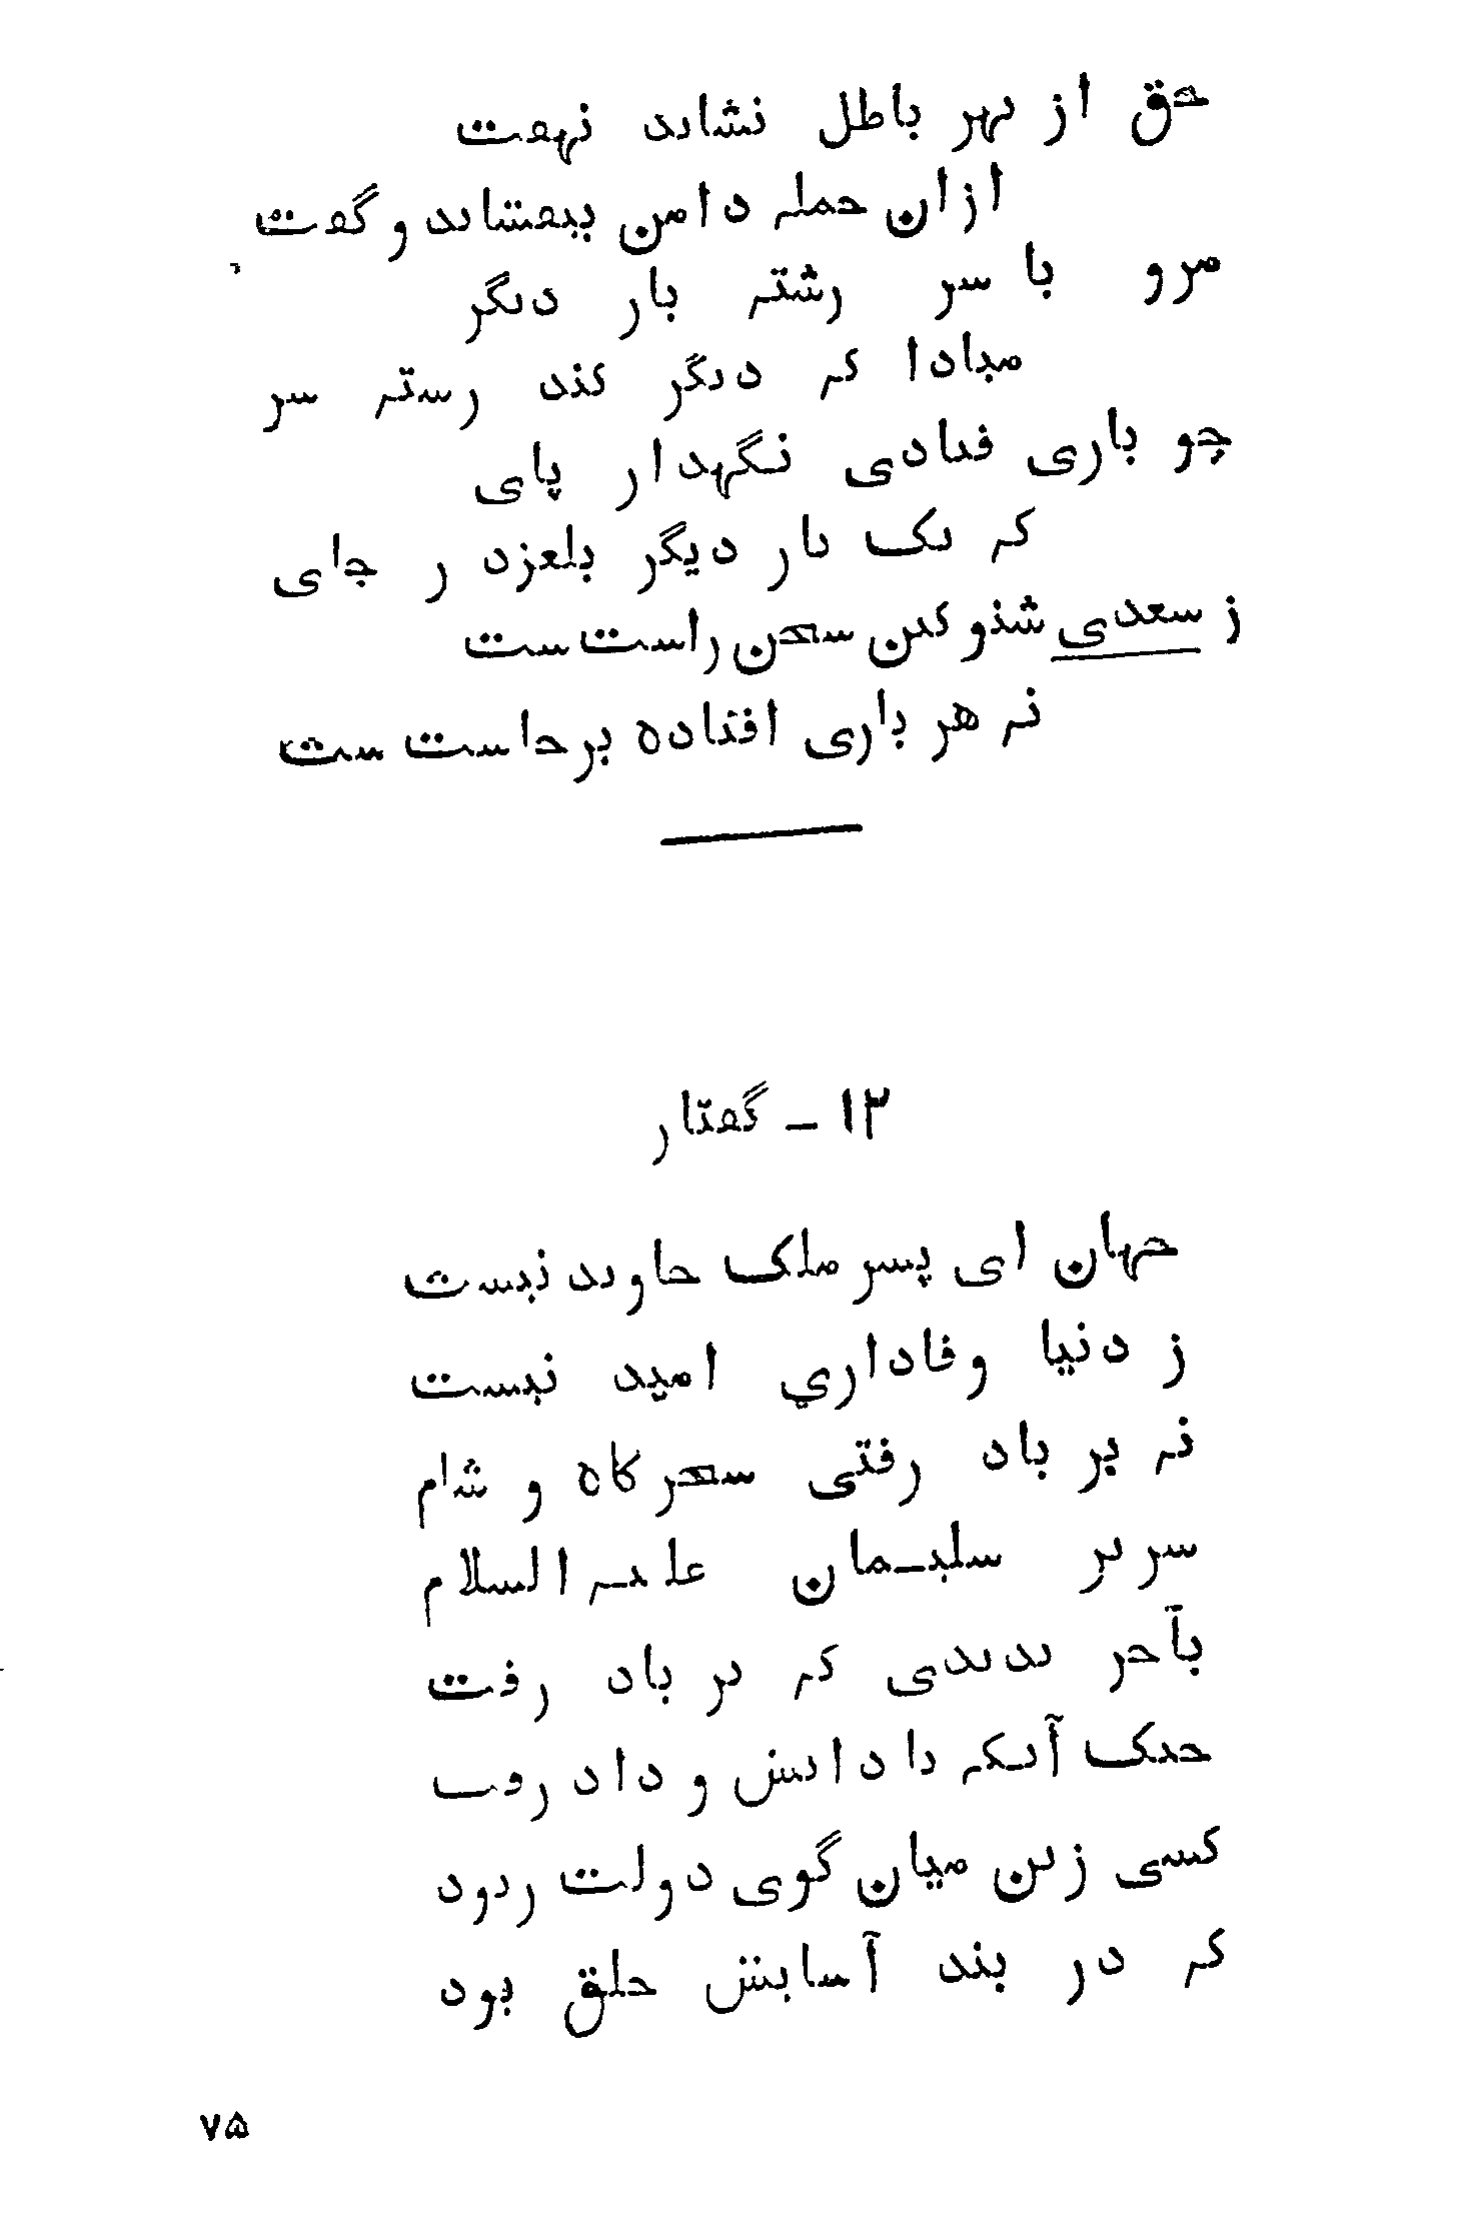 حق از بهر باطل نشاید نهفت
ازان جمله دامن بیفشاند و گفت
مرو با سر رشته بار دیگر
مبادا که دیگر کند رشته سر
چو باری فتادی نگهدار پای
که یک بار دیگر بلغزد ز جای
ز سعدی شنو کین سخن راست ست
نه هر باری افتاده برخاست ست
۱۲ - گفتار
جهان ای پسر ملک جاوید نیست
ز دنیا وفاداري امید نیست
نه بر باد رفتی سحرگاه و شام
سریر سلیمان علیه السلام
بآخر ندیدی که بر باد رفت
خنک آنکه با دانش و داد رفت
کسی زین میان گوی دولت ربود
که در بند آسایش خلق بود
۷۵